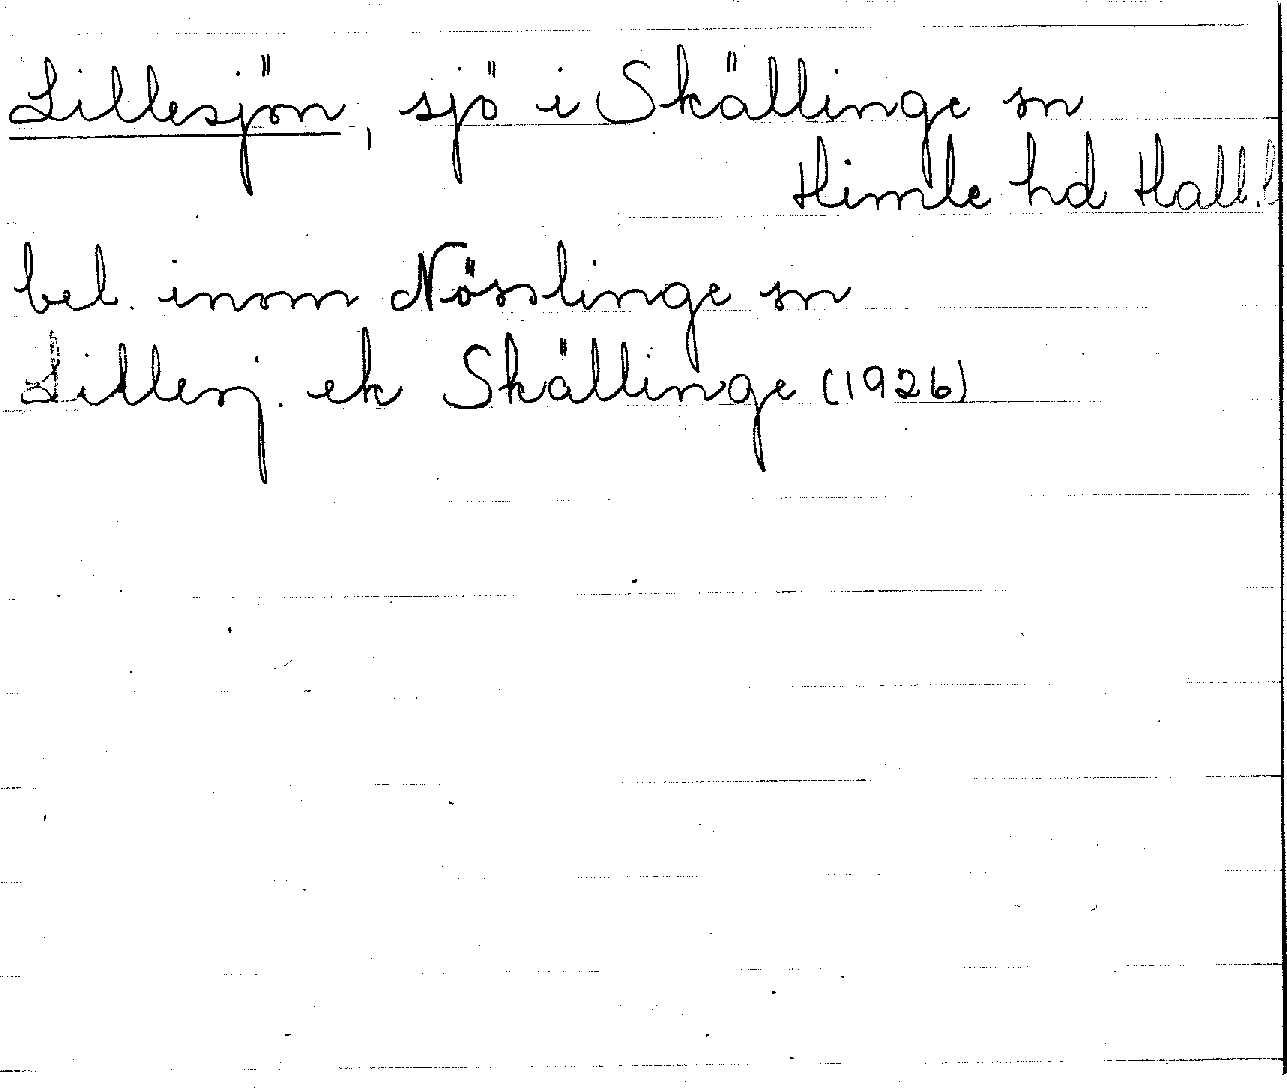 Lillesjön, sjö i Skällinge sn
Himle hd Hall.
bel. inom Nösslinge sn
Lillesj. ek Skällinge (1926)